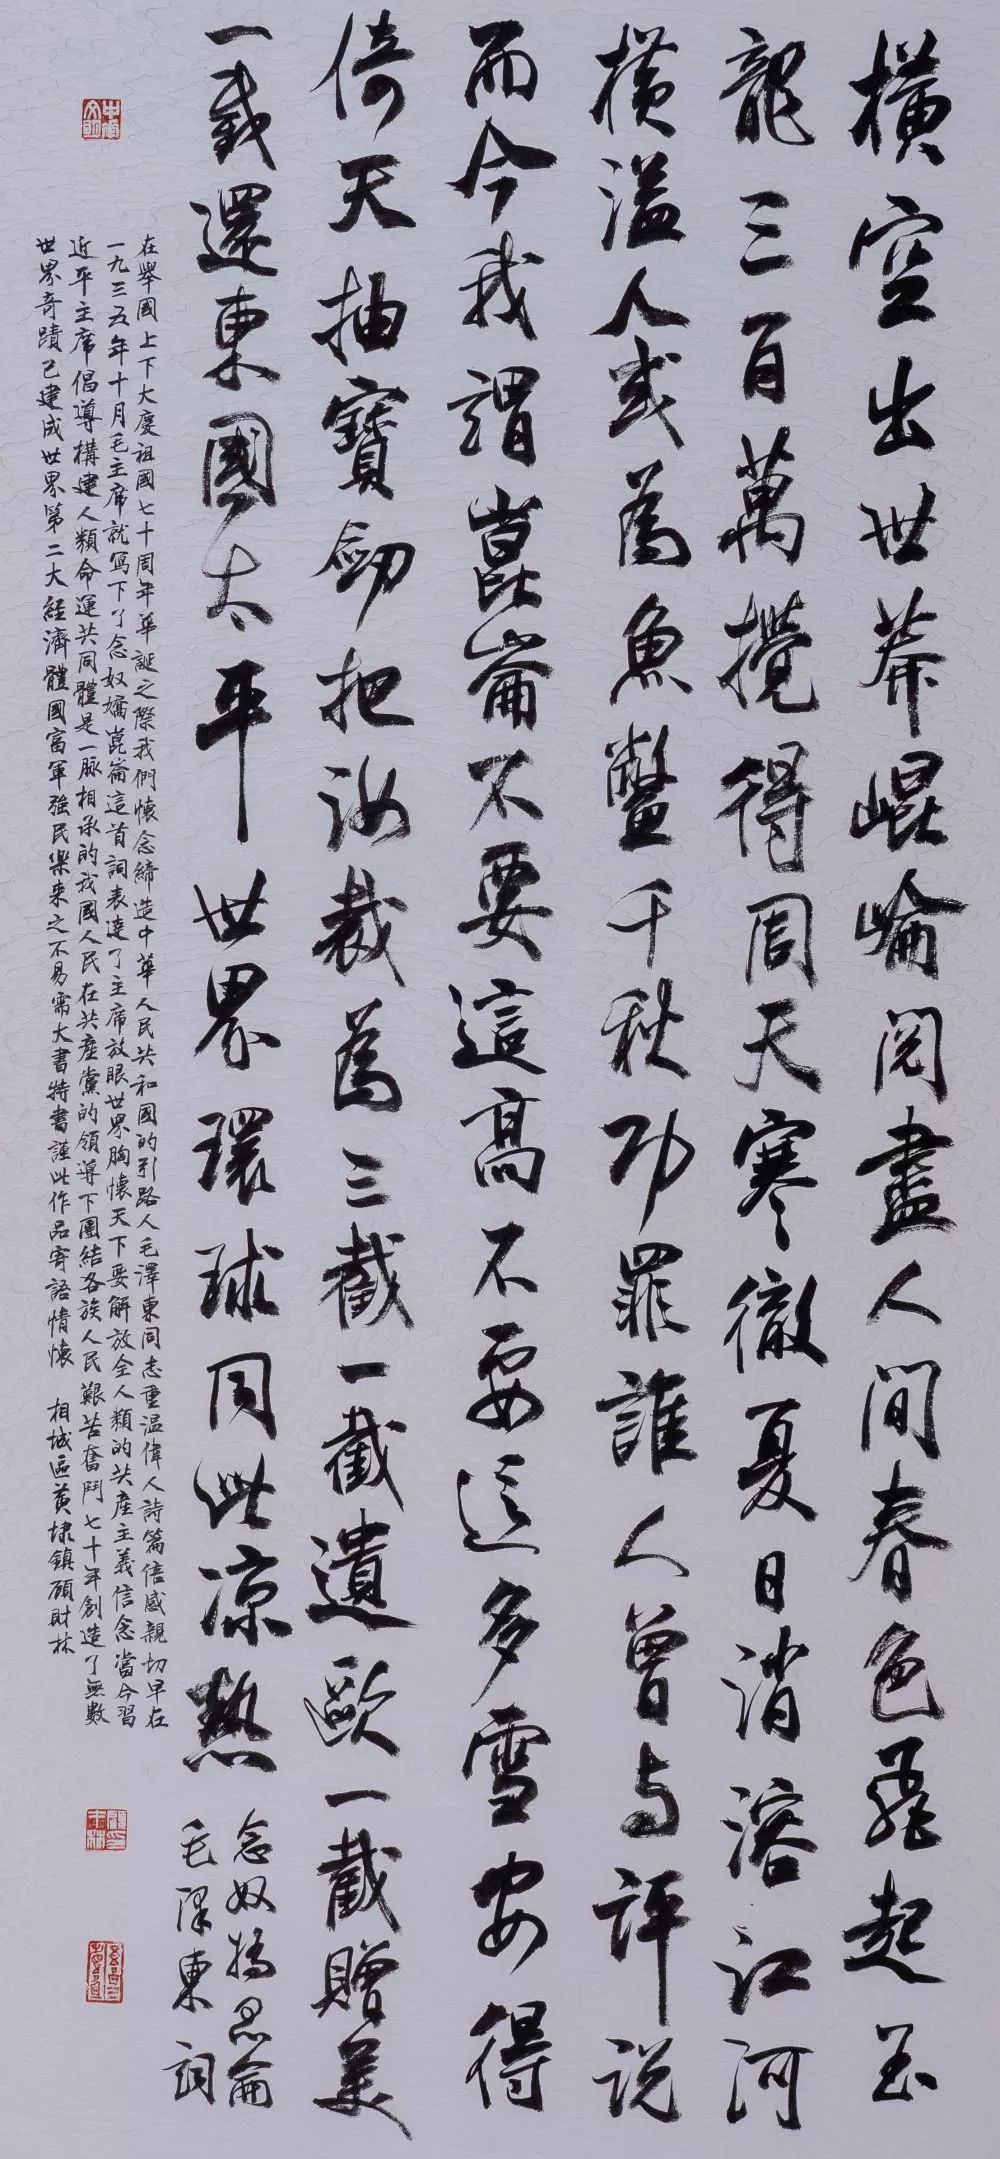 橫空出世莽崐崘閱盡人間春色飛起玉
龍三百萬攪得周天寒徹夏日消溶江河
橫溢人或為魚鱉千秋功罪誰人曾与評說
而今我謂崑崙不要這高不要這多雪安得
倚天抽寶劍把汝裁為三截一截遺歐一截贈美
一截還東國太平世界環球同此涼熱
念奴嬌昆侖
毛澤東詞
在舉國上下大慶祖國七十周年華誕之際我們懷念締造中華人民共和國的引路人毛澤東同志重温偉人詩篇倍感親切早在
一九三五年十月毛主席就寫下了念奴嬌崑崙這首詞表達了主席放眼世界胸懷天下要解放全人類的共產主義信念當今習
近平主席倡導構建人類命運共同體是一脈相承的我國人民在共產黨的領導下團結各族人民艱苦奮鬥七十年創造了無數
世界奇蹟已建成世界第二大經濟體國富軍強民樂來之不易需大書特書謹此作品寄語情懷 相城區黃埭鎮顧財林